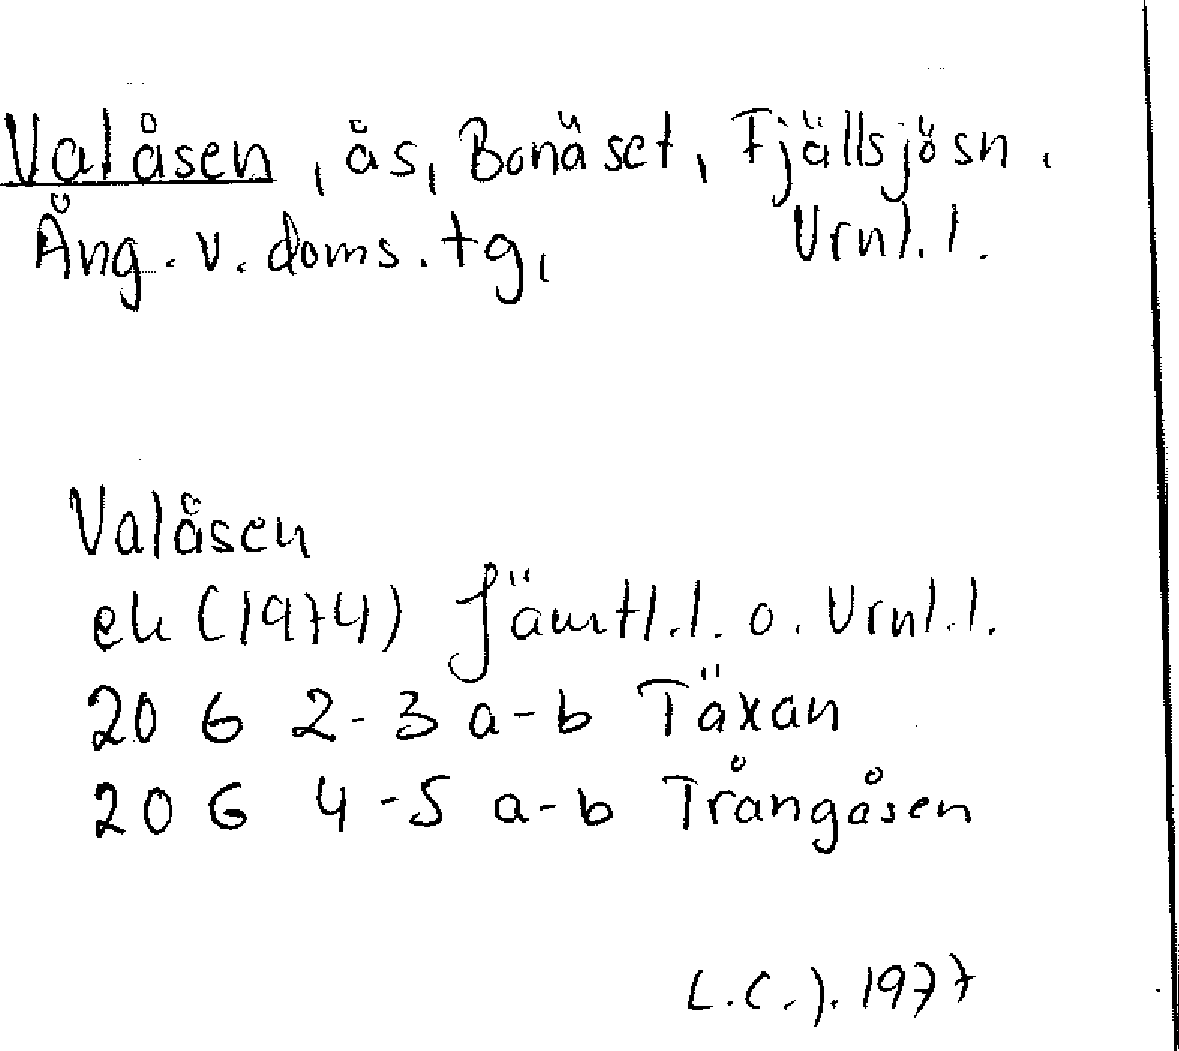 Valåsen, ås, Bonäset, Fjällsjö sn,
Ång. v. doms. tg, Vrnl. l.
Valåsen
ek (1974) Jämtl. l. o. Vrnl. l.
20 G 2-3 a-b Täxan
20 G 4-5 a-b Trångåsen
L.C.J. 1977